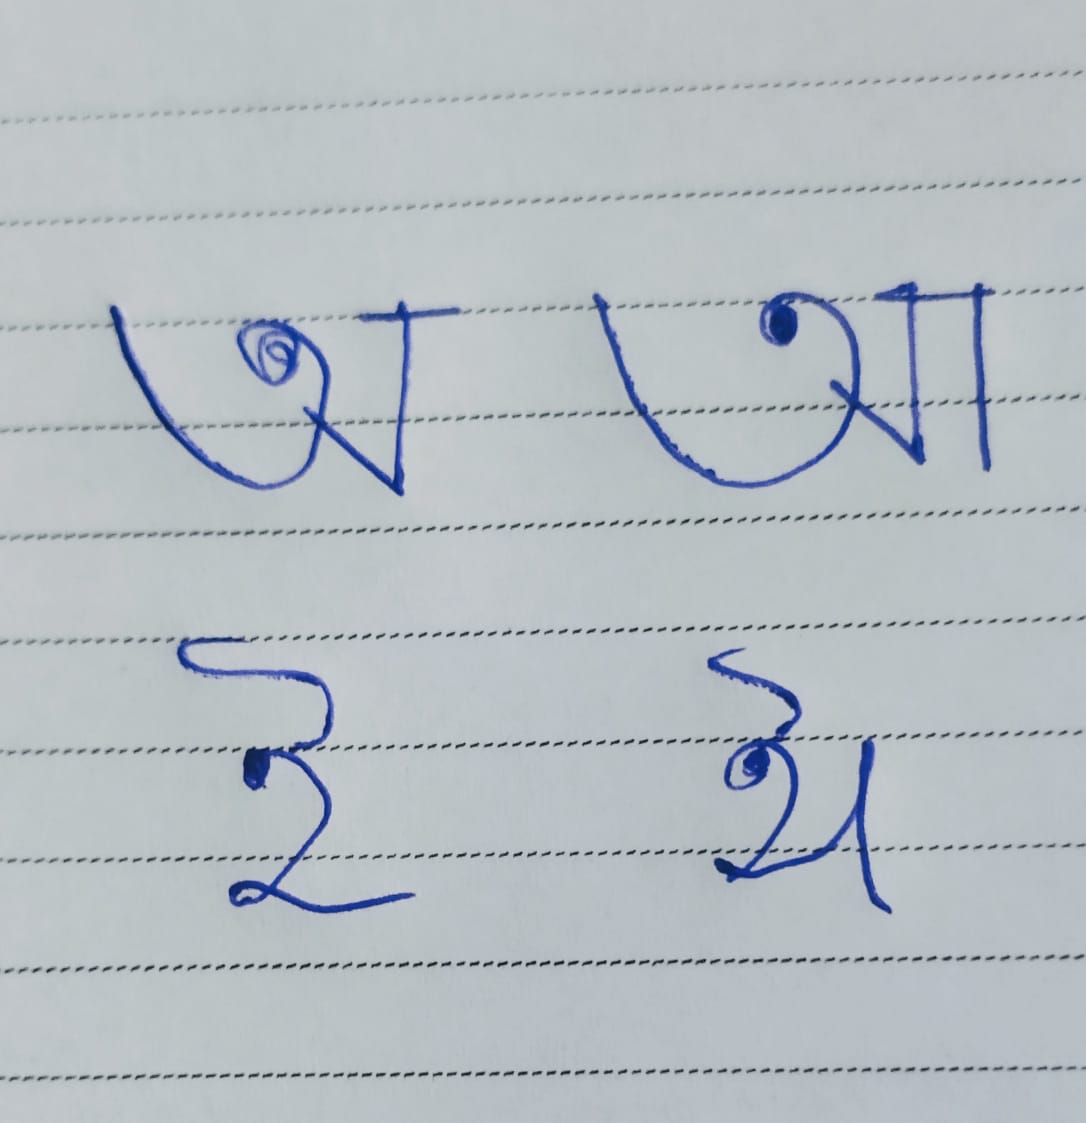 অ আ
ই ঈ